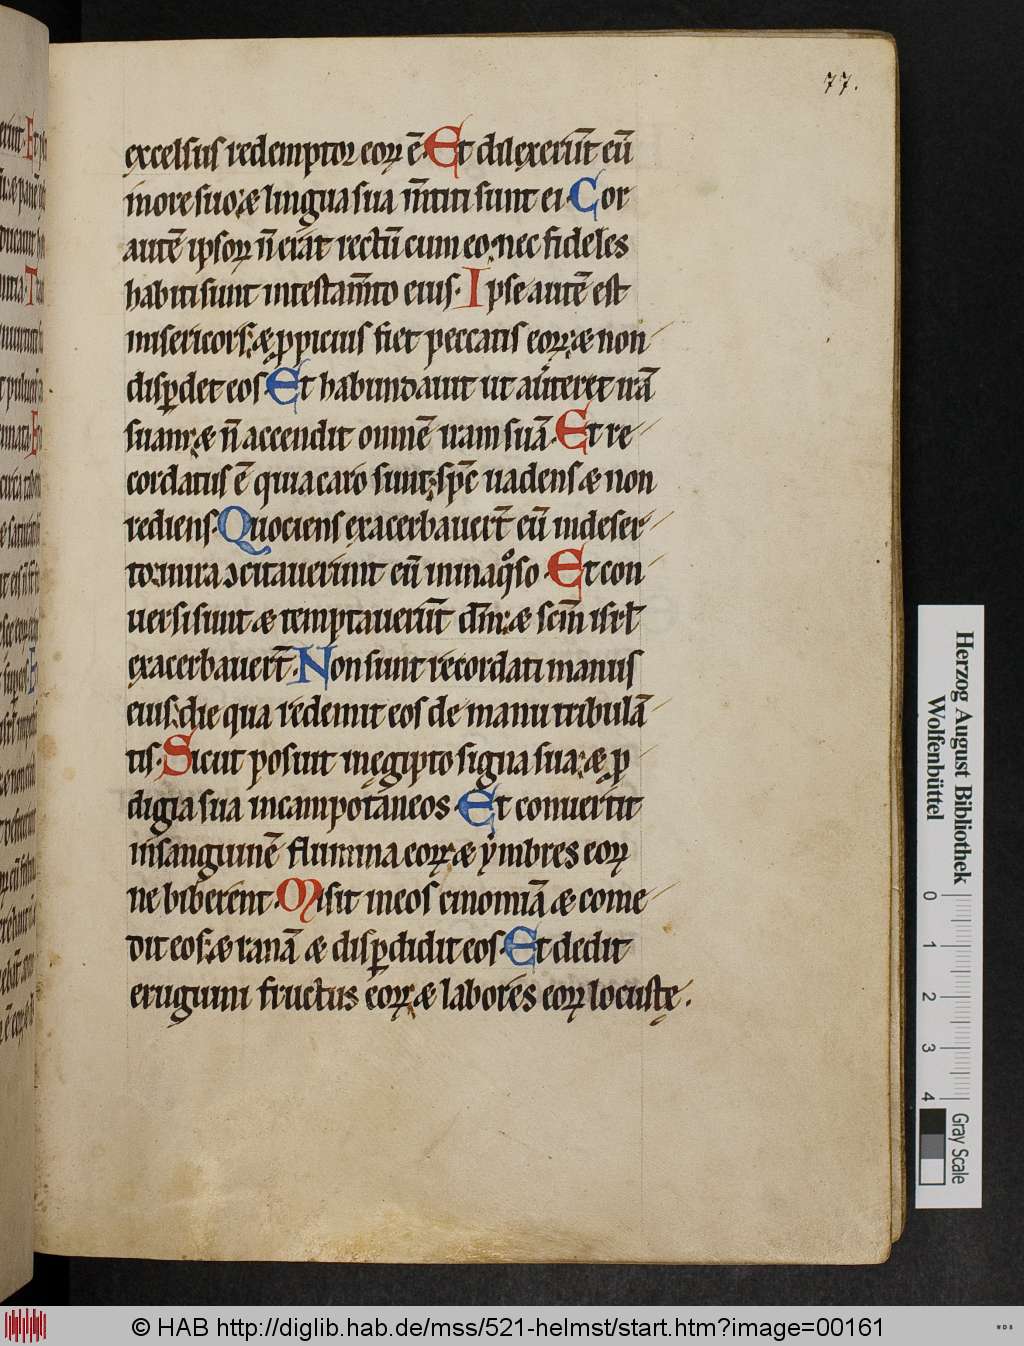 77.
excelsus redemptor eoꝝ ē· Et dilexerūt eū
in ore suo; & lingua sua m̄titi sunt ei· Cor
autē ipsoꝝ n̄ erat rectū cum eo; nec fideles
habiti sunt in testam̄to eius· Ipse autē est
misericors; & ꝓpicius fiet peccatis eoꝝ; & non
disꝑdet eos· Et habundauit ut au̓teret irā
suam; & n̄ accendit omnē iram suā· Et re
cordatus ē quia caro sunt; sp̄c uadens & non
rediens· Quociens exacerbauer̄t eū in deser
to; in ira ↄcitauerunt eū in inaqͦso· Et con
uersi sunt & temptauerūt dm̄; & scm̄ isrƚ
exacerbauer̄t· Non sunt recordati manus
eius; die qua redemit eos de manu tribulā
tis· Sicut posuit in egipto signa sua; & ꝓ
digia sua in campo taneos· Et conuertit
in sanguinē flumina eoꝝ; & ymbres eoꝝ
ne biberent· Misit in eos cinomiā & come
dit eos; & ranā & disꝑdidit eos· Et dedit
erugini fructus eoꝝ; & labores eoꝝ locustę.
Herzog August Bibliothek
Wolfenbüttel
0 1 2 3 4
Gray Scale
© HAB http://diglib.hab.de/mss/521-helmst/start.htm?image=00161